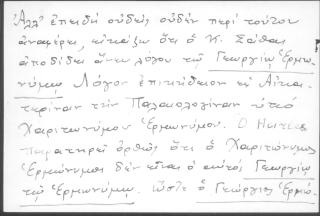 Ἀλλ' ἐπειδὴ οὐδεὶς οὐδὲν περὶ τούτου
ἀναφέρει, εἰκάζω ὅτι ὁ Κ. Σάθας
ἀποδίδει ἄνευ λόγου τῷ Γεωργίῳ Ἑρμω-
νύμῳ Λόγον ἐπικήδειον εἰς Αἰκα-
τερίναν τὴν Παλαιολογίναν ὑπὸ
Χαριτωνύμου Ἑρμωνύμου. Ὁ
παρατηρεῖ ὀρθῶς ὅτι ὁ Χαριτώνυμος
Ἑρμώνυμος δὲν εἶναι ὁ αὐτὸς Γεωργίῳ
τῷ Ἑρμωνύμῳ. ὥστε ὁ Γεώργιος Ἑρμώ-